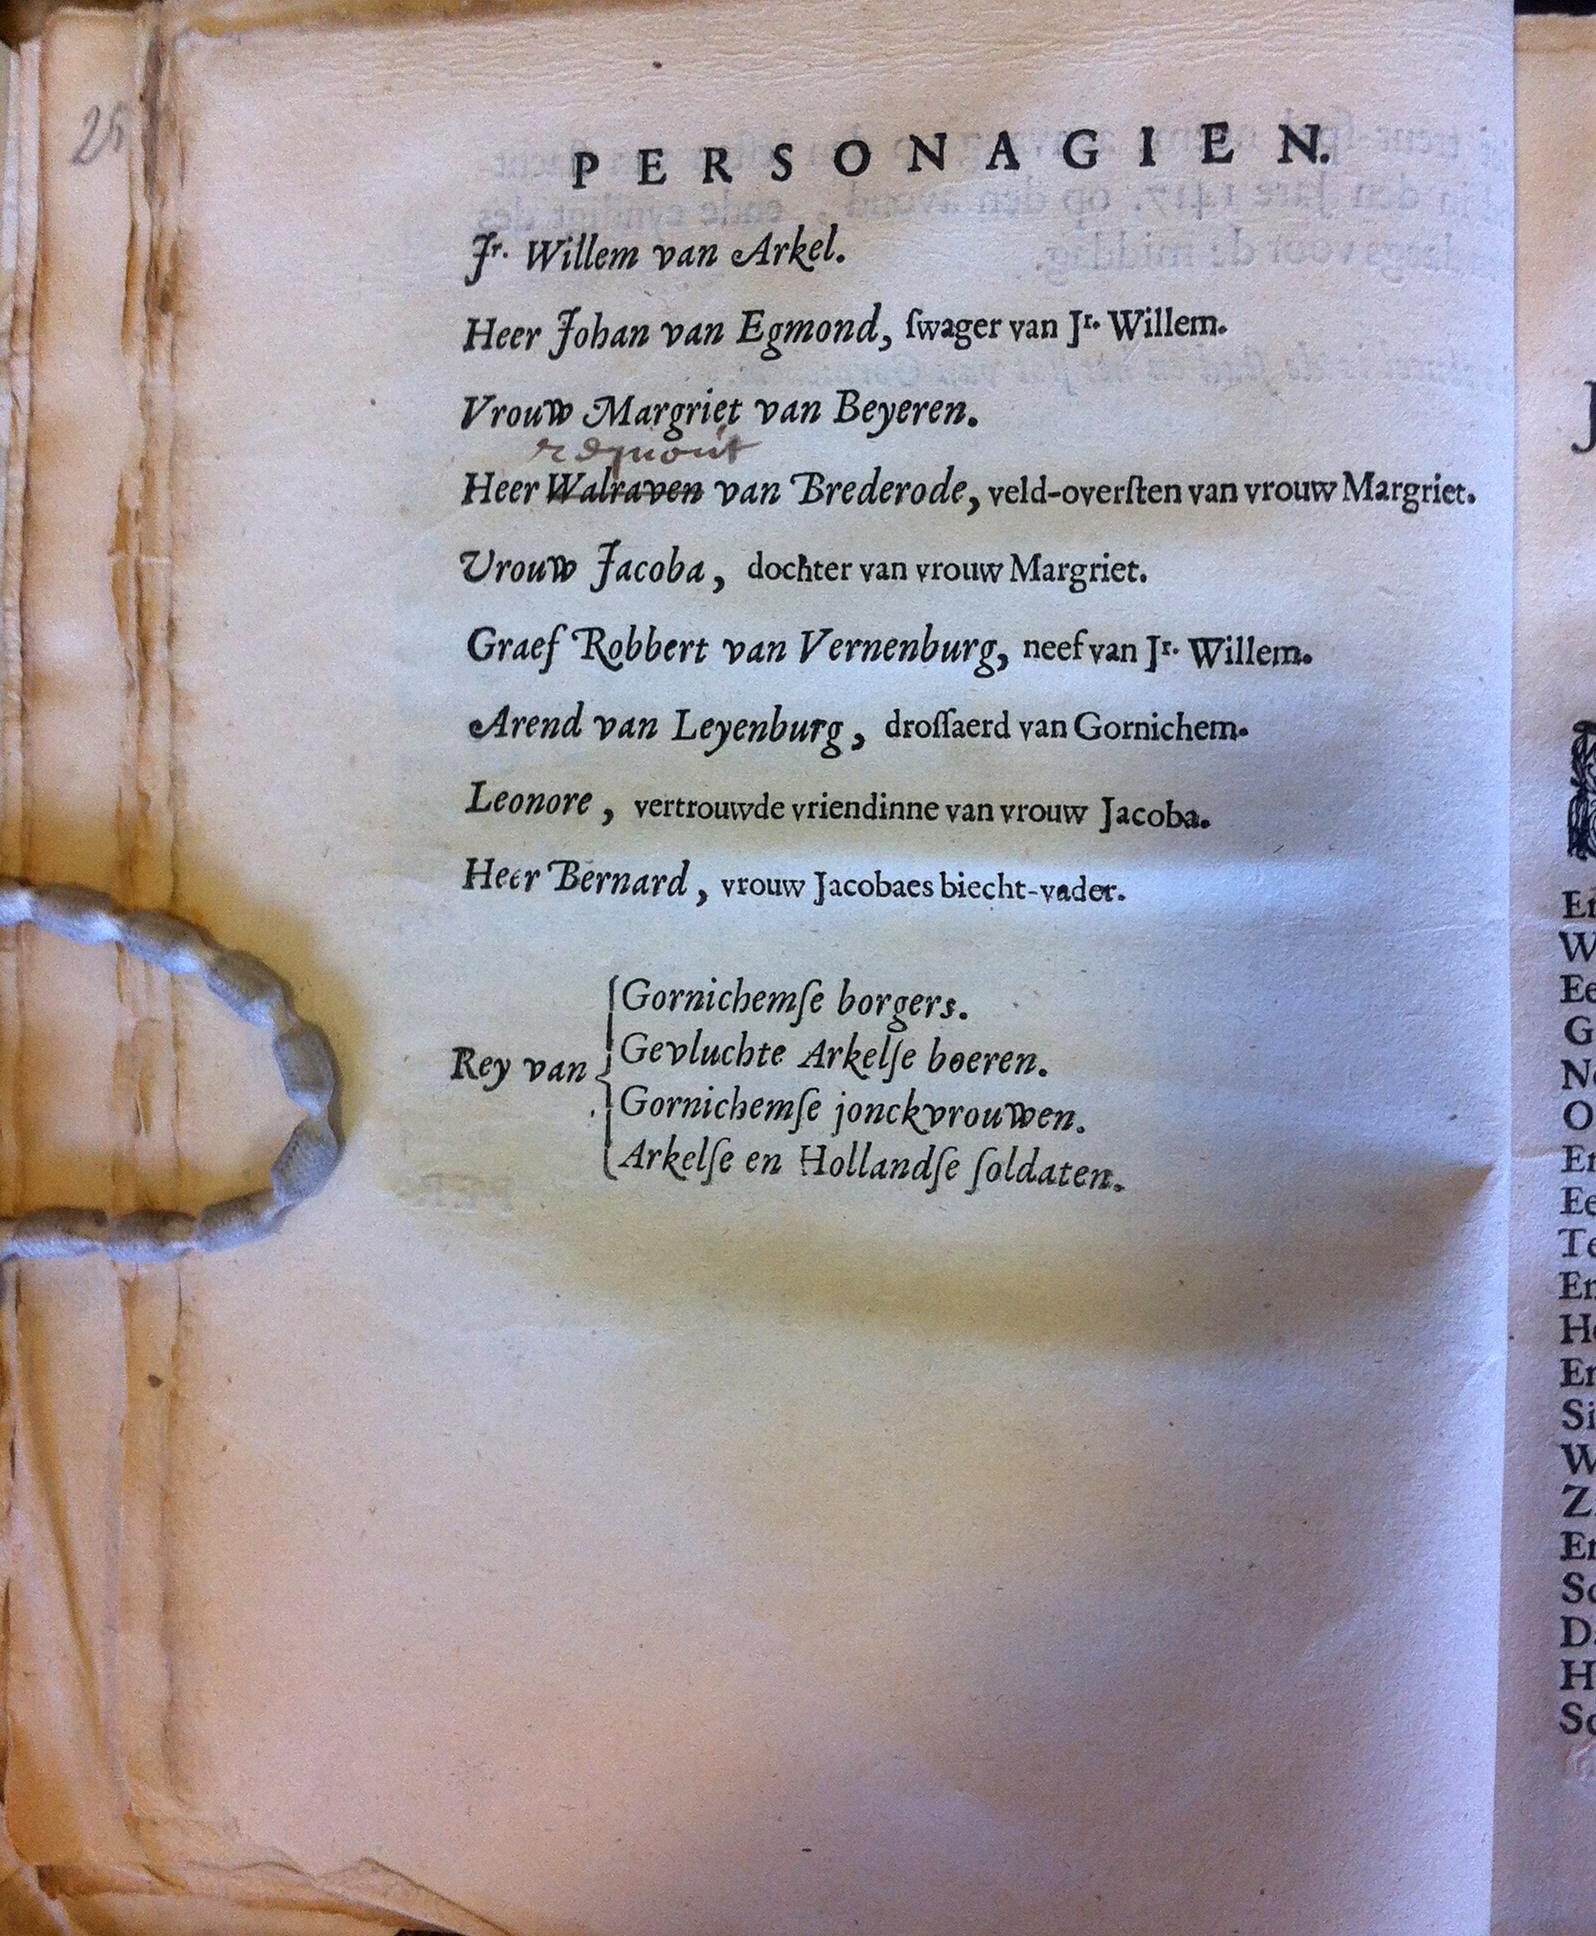 25
PERSONAGIEN.
Jr. Willem van Arkel.
Heer Johan van Egmond, ſwager van Jr. Willem.
Vrouw Margriet van Beyeren.
Heer Walraven van Brederode, veld-overſten van vrouw Margriet.
Vrouw Jacoba, dochter van vrouw Margriet.
Graef Robbert van Vernenburg, neef van Jr. Willem.
Arend van Leyenburg, droſſaerd van Gornichem.
Leonore, vertrouwde vriendinne van vrouw Jacoba.
Heer Bernard, vrouw Jacobaes biecht-vader.
Gornichemſe borgers.
Rey van
Gevluchte Arkelſe boeren.
Gornichemſe jonckvrouwen.
Arkelſe en Hollandſe ſoldaten.
J
Er
W
Ee
G
Ne
O
En
Ee
Te
En
He
En
Si
W
Z
En
So
Da
H
So